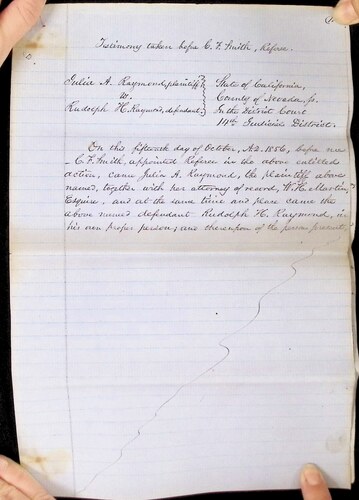 Testimony taken before C. F. Smith, Referee.
Julia A. Raymond, plaintiff, State of California,
vs. County of Nevada, ss.
Rudolph H. Raymond, defendant. In the District Court
14th Judicial District.
On this fifteenth day of October, A.D. 1886, before me
C. F. Smith, appointed Referee in the above entitled
action, came Julia A. Raymond, the plaintiff above
named, together with her attorney of record, W. H.
Esquire, and at the same time and place came the
above named defendant Rudolph H. Raymond, in
his own proper person; and thereupon of the